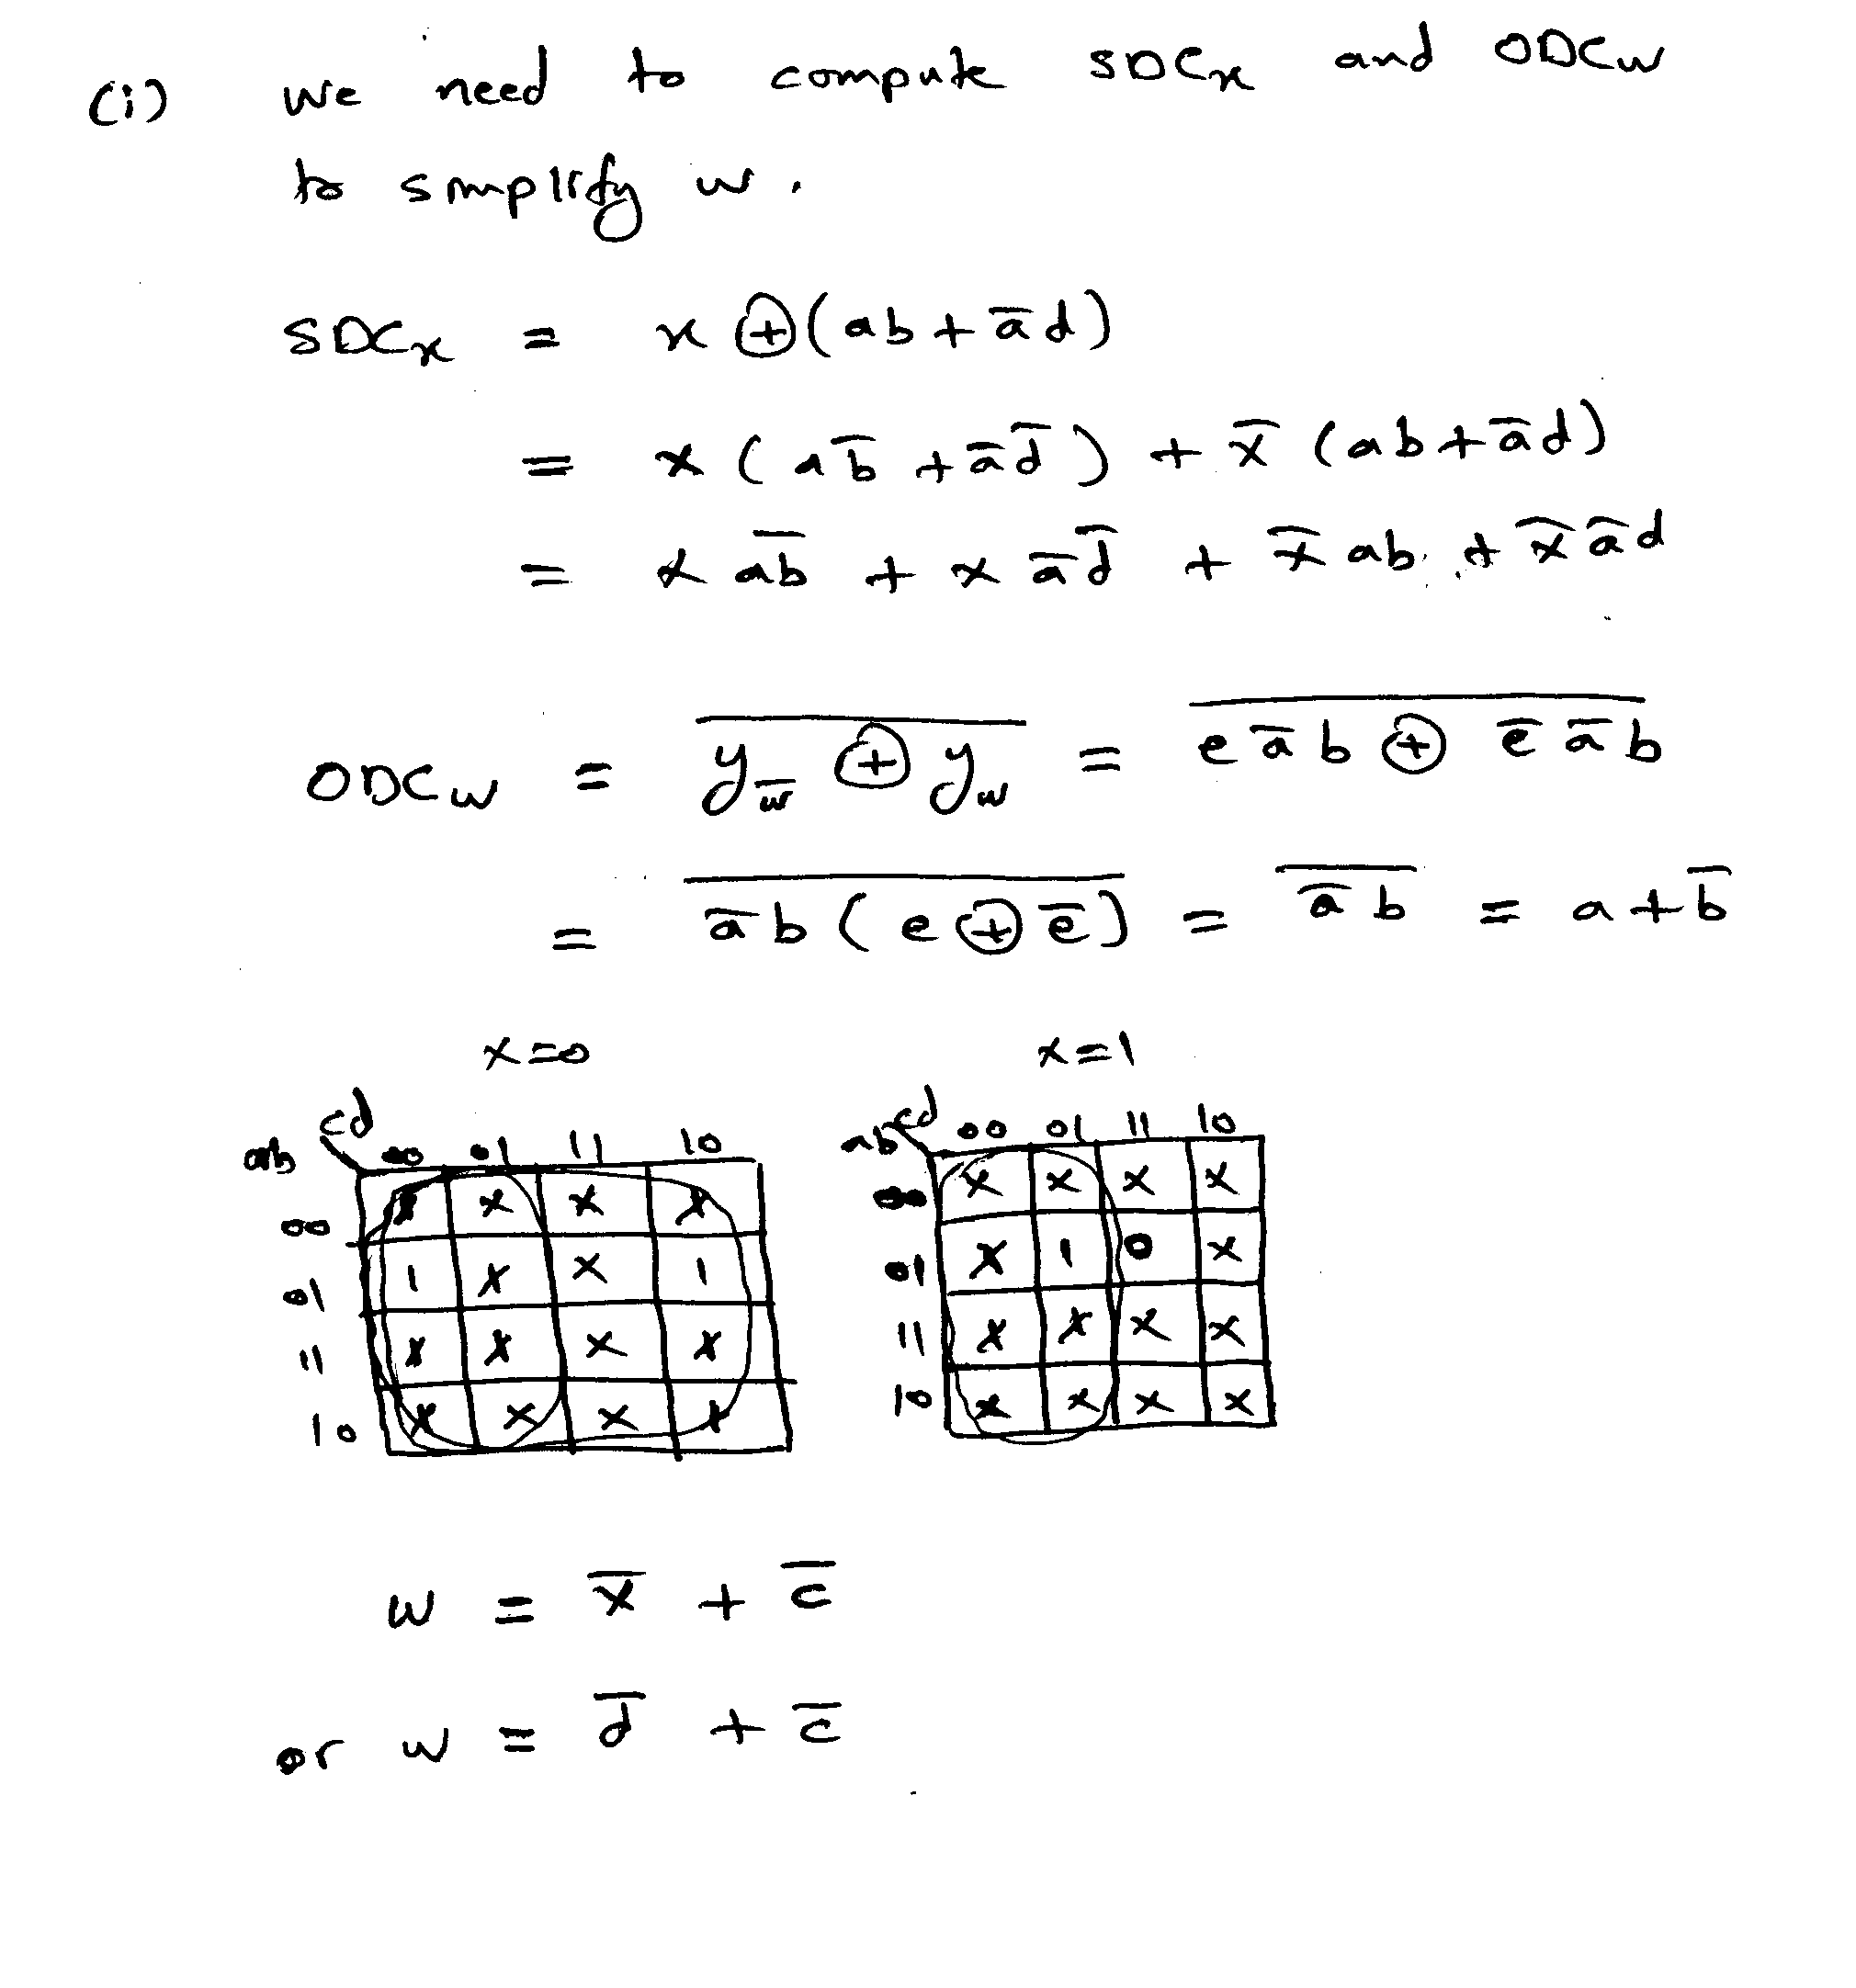 (i) we need to compute SDCx and ODCw
to smplify w.
SDCx = x ⊕ (ab + a̅d)
= x (ab̅ + a̅d̅) + x̅ (ab + a̅d)
= x ab̅ + x a̅d̅ + x̅ ab + x̅ a̅d
ODCw = \overline{y_{w̅} ⊕ y_w} = \overline{e a̅ b ⊕ e̅ a̅ b}
= \overline{a̅ b (e ⊕ e̅)} = \overline{a̅ b} = a + b̅
x=0 x=1
ab cd 00 01 11 10 ab cd 00 01 11 10
00 x x x x 00 x x x x
01 1 x x 1 01 x 1 0 x
11 x x x x 11 x x x x
10 x x x x 10 x x x x
w = x̅ + c̅
or w = d̅ + c̅